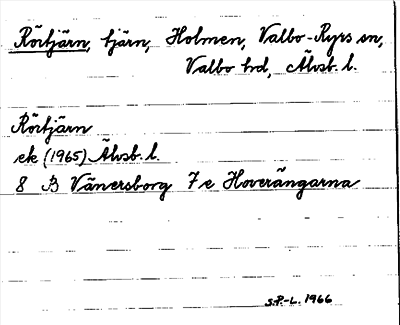 Rörtjärn, tjärn, Holmen, Valbo-Ryrs sn,
Valbo hd, Älvsb. l.
Rörtjärn
ek (1965) Älvsb. l.
8 B Vänersborg 7 e Hoverängarna
S.P.-L. 1966